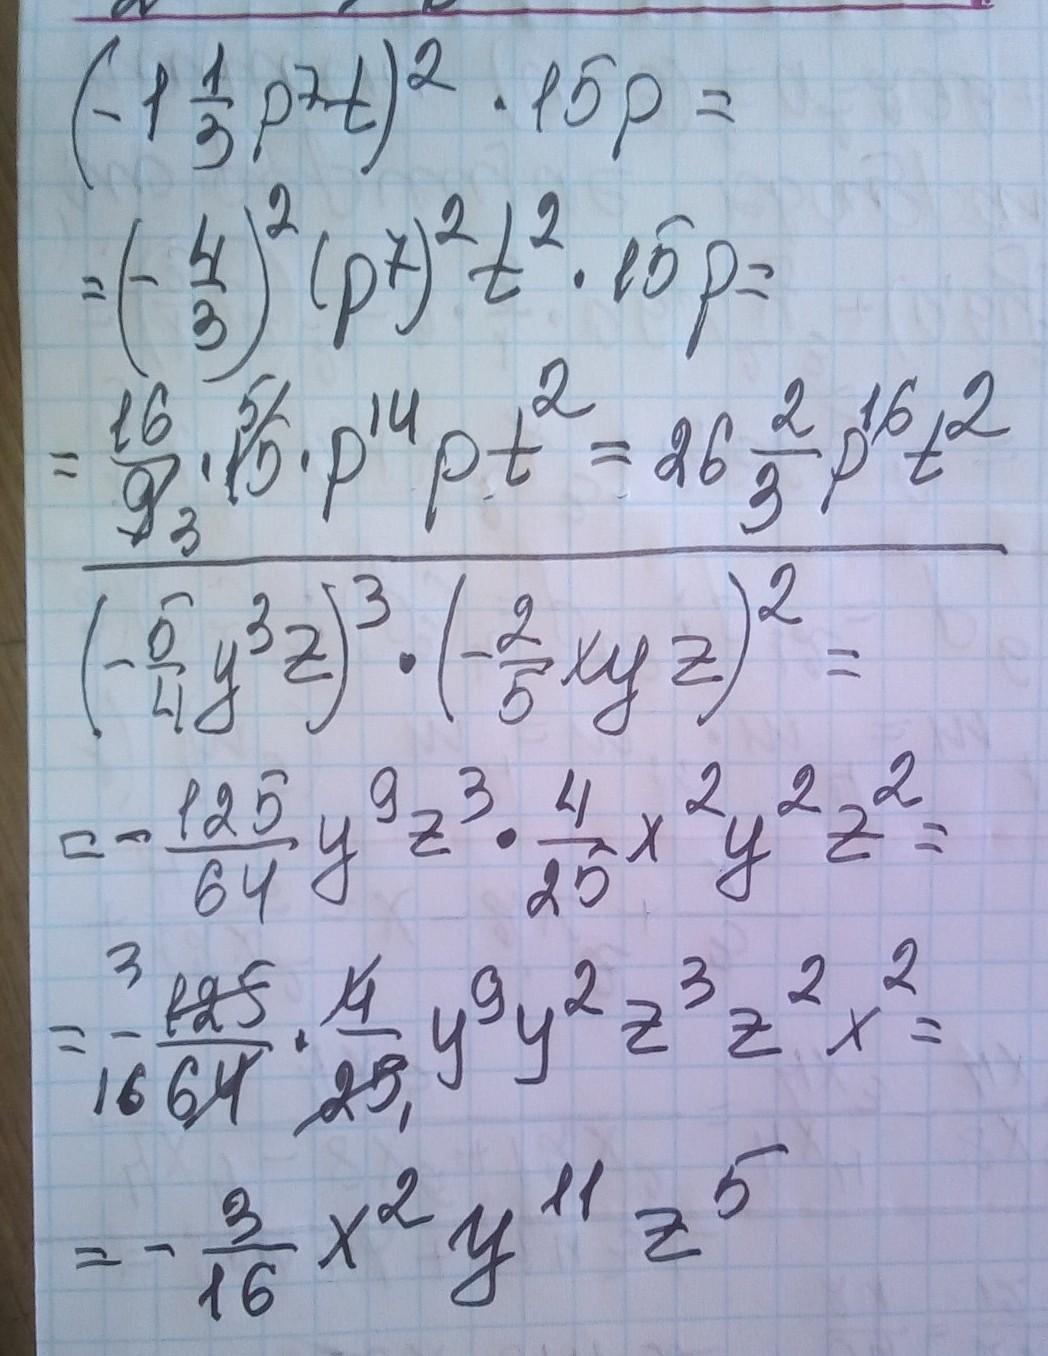 (-1 1/3 p⁷t)² · 15p =
= (-4/3)² (p⁷)² t² · 15p =
= 16/9 3 · 15 5 · p¹⁴ p t² = 26 2/3 p¹⁶ t²
(-5/4 y³z)³ · (-2/5 xyz)² =
= - 125/64 y⁹z³ · 4/25 x²y²z² =
= - 3 125/16 64 · 4/25 1 y⁹y²z³z²x² =
= - 3/16 x²y¹¹z⁵